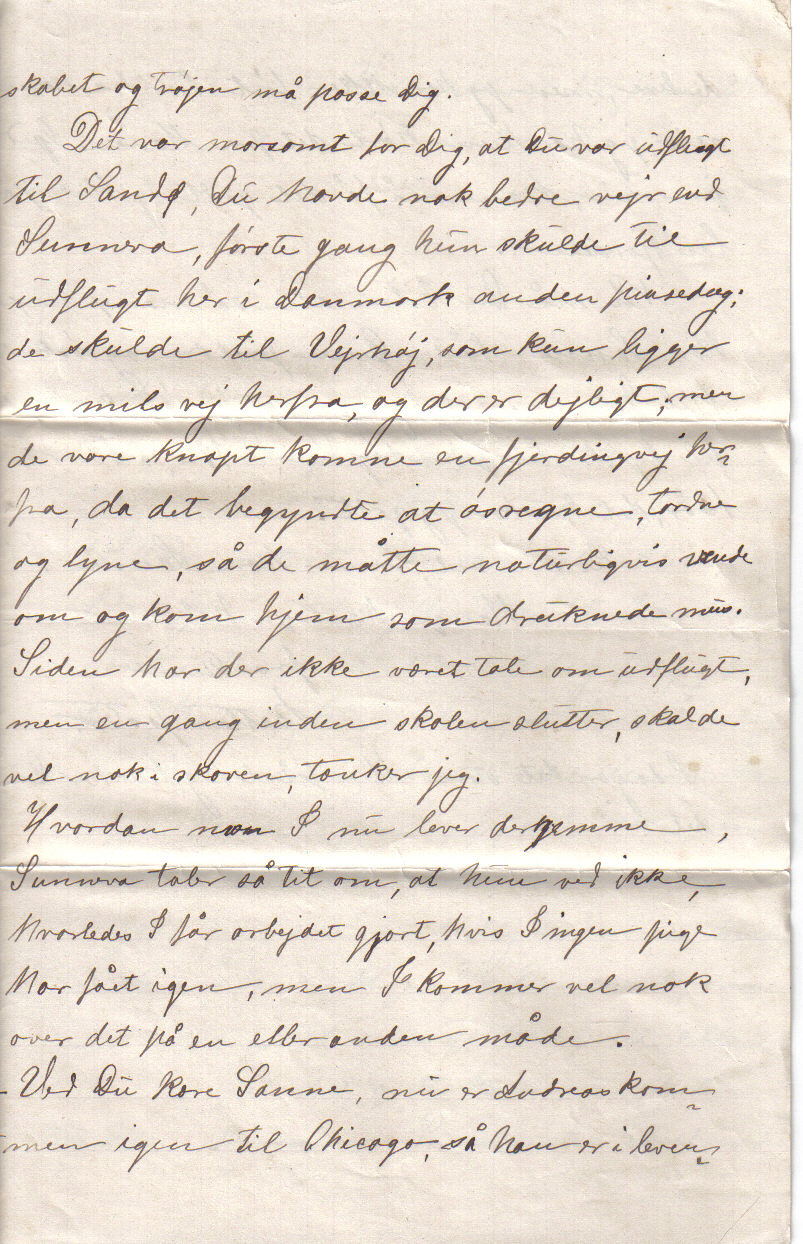 skabet og trøjen må passe Dig.
Det var morsomt for Dig, at Du var udflugt
til Sandø, Du havde nok bedre vejr end
Sunneva, første gang hun skulde til
udflugt her i Danmark anden pinsedag;
de skulde til Vejrhøj, som kun ligger
en mils vej herfra, og der er dejligt; men
de vare knapt komne en fjerdingvej her-
fra, da det begyndte at øsregne, tordne
og lyne, så de måtte naturligvis vende
om og kom hjem som druknede mus.
Siden har der ikke været tale om udflugt,
men en gang inden skolen slutter, skal de
vel nok i skoven, tænker jeg.
Hvordan mon I nu lever der hjemme,
Sunneva taler så tit om, at hun ved ikke,
hvorledes I får arbejdet gjort, hvis I ingen pige
har fået igen, men I kommer vel nok
over det på en eller anden måde.
- Ved Du kære Sanne, nu er Andreas kom-
men igen til Chicago, så han er i leven-